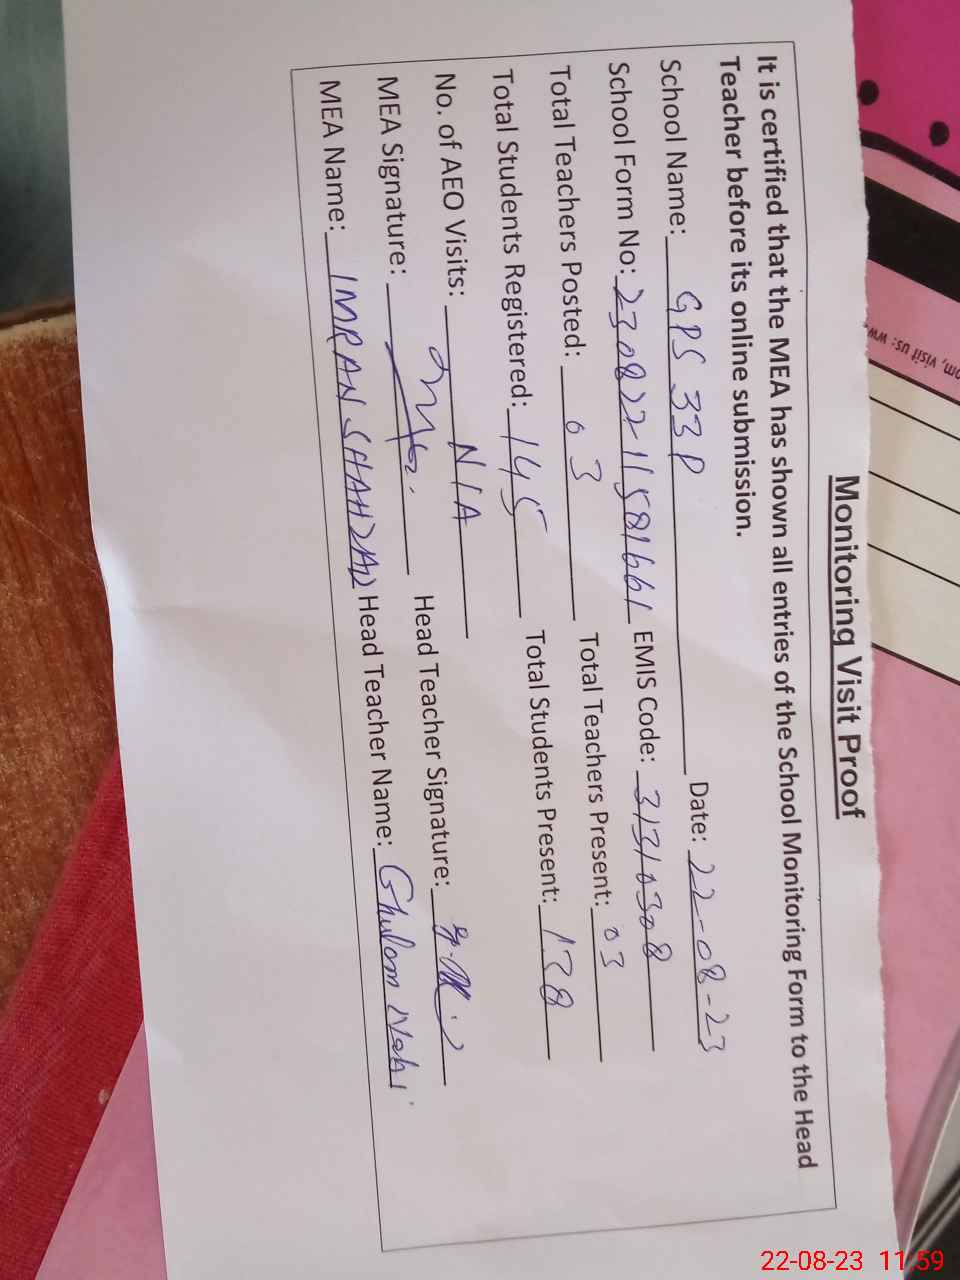 Monitoring Visit Proof
It is certified that the MEA has shown all entries of the School Monitoring Form to the Head
Teacher before its online submission.
School Name: GPS 33P Date: 22-08-23
School Form No: 23082211581661 EMIS Code: 31310308
Total Teachers Posted: 03 Total Teachers Present: 03
Total Students Registered: 145 Total Students Present: 138
No. of AEO Visits: N/A
MEA Signature: Head Teacher Signature:
MEA Name: IMRAN SHAHZAD Head Teacher Name: Ghulam Nabi
om, visit us: ww
22-08-23 11:59